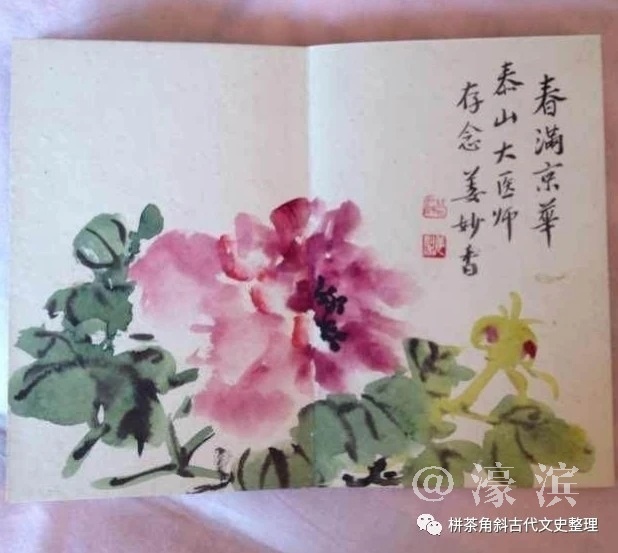 春满京华
泰山大医师
存念 姜妙香
@濠滨
栟茶角斜古代文史整理